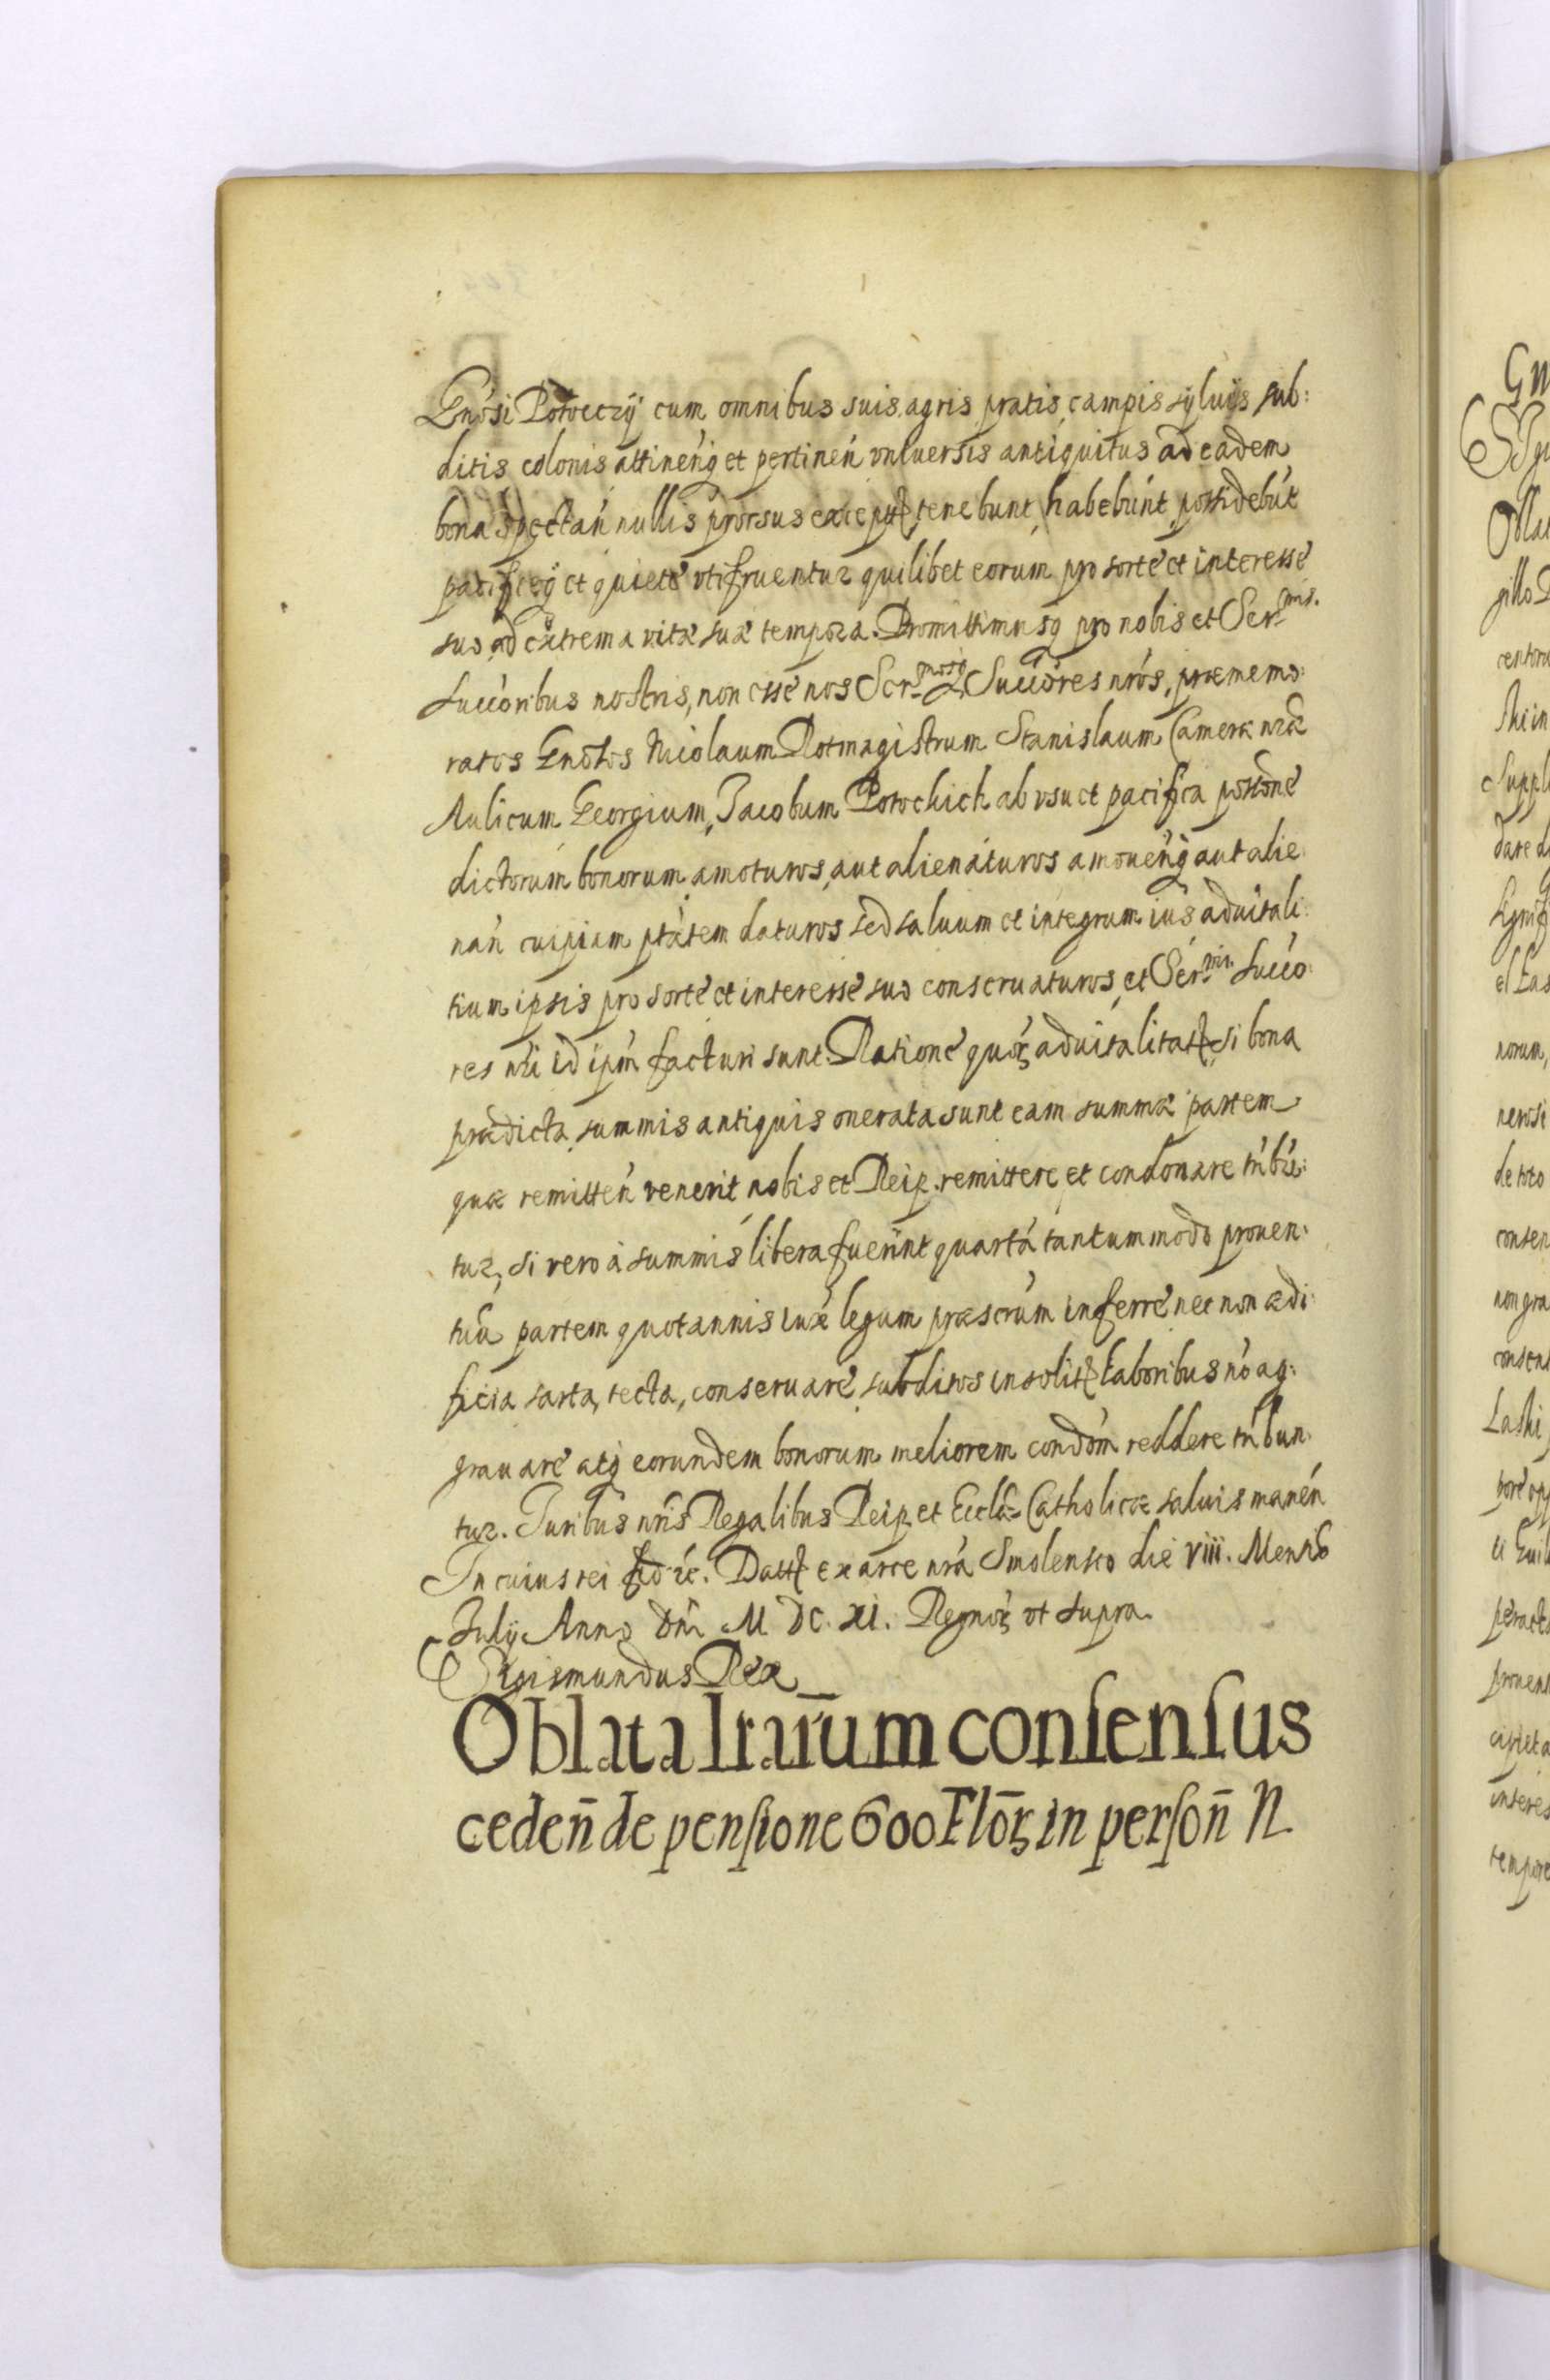 Gnosi Potoeczÿ cum omnibus suis agris pratis campis sÿluÿs sub:
ditis colonis attinenq̃ et pertineń vniuersis antiquitus ad eadem
bona spectań nullis prorsus exceptꝭ tenebunt, habebúnt, possidebút
pacificeq̃ et quiete vtifruentur quilibet eorum pro sorte et interesse
suo ad extrema vitæ suæ tempora. Promittimusq̃ pro nobis et Ser.mis.
Succoribus nostris, non esse nos Ser.mosq̃ Succores nros, præmemo:
ratos Gnosos Nicolaum Rotmagistrum Stanislaum Cameræ nræ
Aulicum Georgium, Jacobum Potockich ab vsu et pacifica possone
dictorum bonorum amoturos, aut alienaturos amouenq̃ aut alie:
nań cuipiam ptatem daturos sed saluum et integrum ius aduitali:
tium ipsis pro sorte et interesse suo conseruaturos, et Ser.mi. Succo:
res nri id ipm facturi sunt. Ratione quoꝝ aduitalitatꝭ si bona
prædicta summis antiquis onerata sunt eam summæ partem
quæ remitteń venerit nobis et Reip. remittere et condonare tńbú:
tur, si vero à summis libera fuerint quartá tantummodo prouen:
tuũ partem quotannis iuxẽ legum præscrúm inferre nec non ædi:
ficia sarta, tecta, conseruare, subditos insolitꝭ laboribus nó ag:
grauare atq̃ eorundem bonorum meliorem condóm reddere tńbun:
tur. Juribus nris Regalibus Reip. et Ecclæ Catholicæ saluis manén
In cuius rei fid: &c. Datt ex arce nrá Smolensco die VIII. Mensis
Julÿ Anno Dni M DC XI. Regnoꝝ vt supra.
Sigismundus Rex
Oblata lrarum consensus
cedeñ de pensione 600 Floꝝ in persoñ N